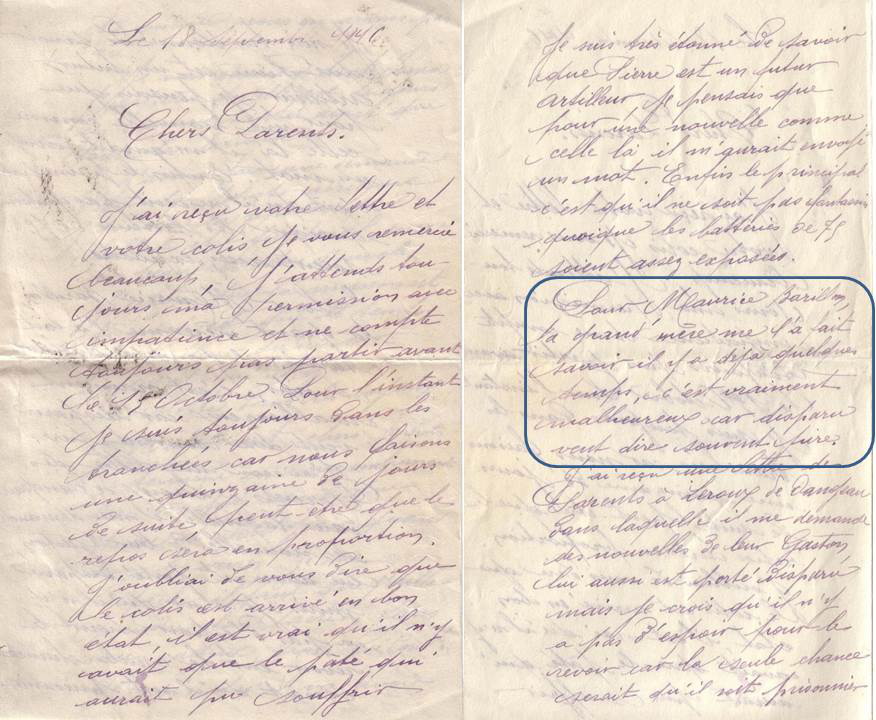 Le 18 Septembre 1916
Chers Parents.
J'ai reçu votre lettre et
votre colis je vous remercie
beaucoup, J'attends tou-
jours ma permission avec
impatience et ne compte
toujours pas partir avant
le 15 Octobre. Pour l'instant
je suis toujours dans les
tranchées car nous faisons
une quinzaine de jours
de suite, peut-être que le
repos sera en proportion.
J'oubliai de vous dire que
le colis est arrivé en bon
état, il est vrai qu'il n'y
avait que le paté qui
aurait pu souffrir
Je suis très étonné de savoir
que Pierre est un futur
artilleur, je pensais que
pour une nouvelle comme
celle là il m'aurait envoyé
un mot. Enfin le principal
c'est qu'il ne soit pas fantassin
quoique les batteries de 75
soient assez exposées.
Pour Maurice Barillon,
la grand' mère me l'a fait
savoir il y a déjà quelques
temps, c'est vraiment
malheureux car disparu
veut dire souvent pire.
J'ai reçu une lettre de
Parents à Leroux de Dangeau
dans laquelle il me demande
des nouvelles de leur Gaston
lui aussi est porté disparu
mais je crois qu'il n'y
a pas d'espoir pour le
revoir car la seule chance
serait qu'il soit prisonnier